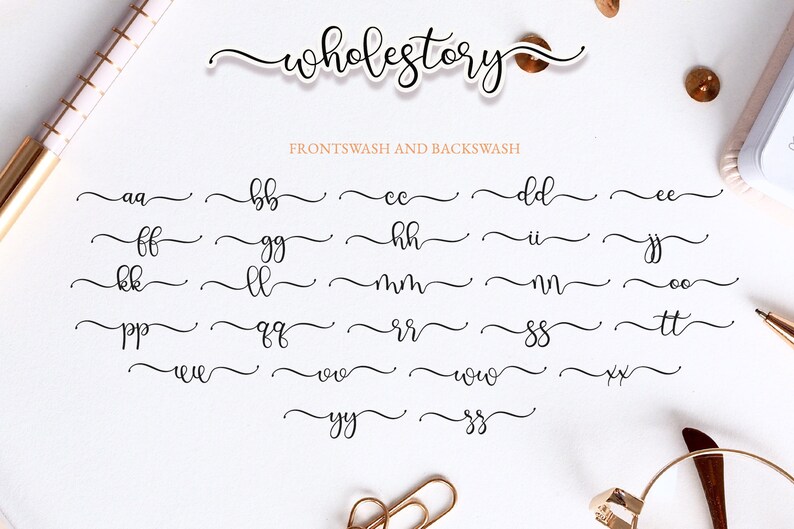 wholestory
FRONTSWASH AND BACKSWASH
aa bb cc dd ee
ff gg hh ii jj
kk ll mm nn oo
pp qq rr ss tt
uu vv ww xx
yy ss